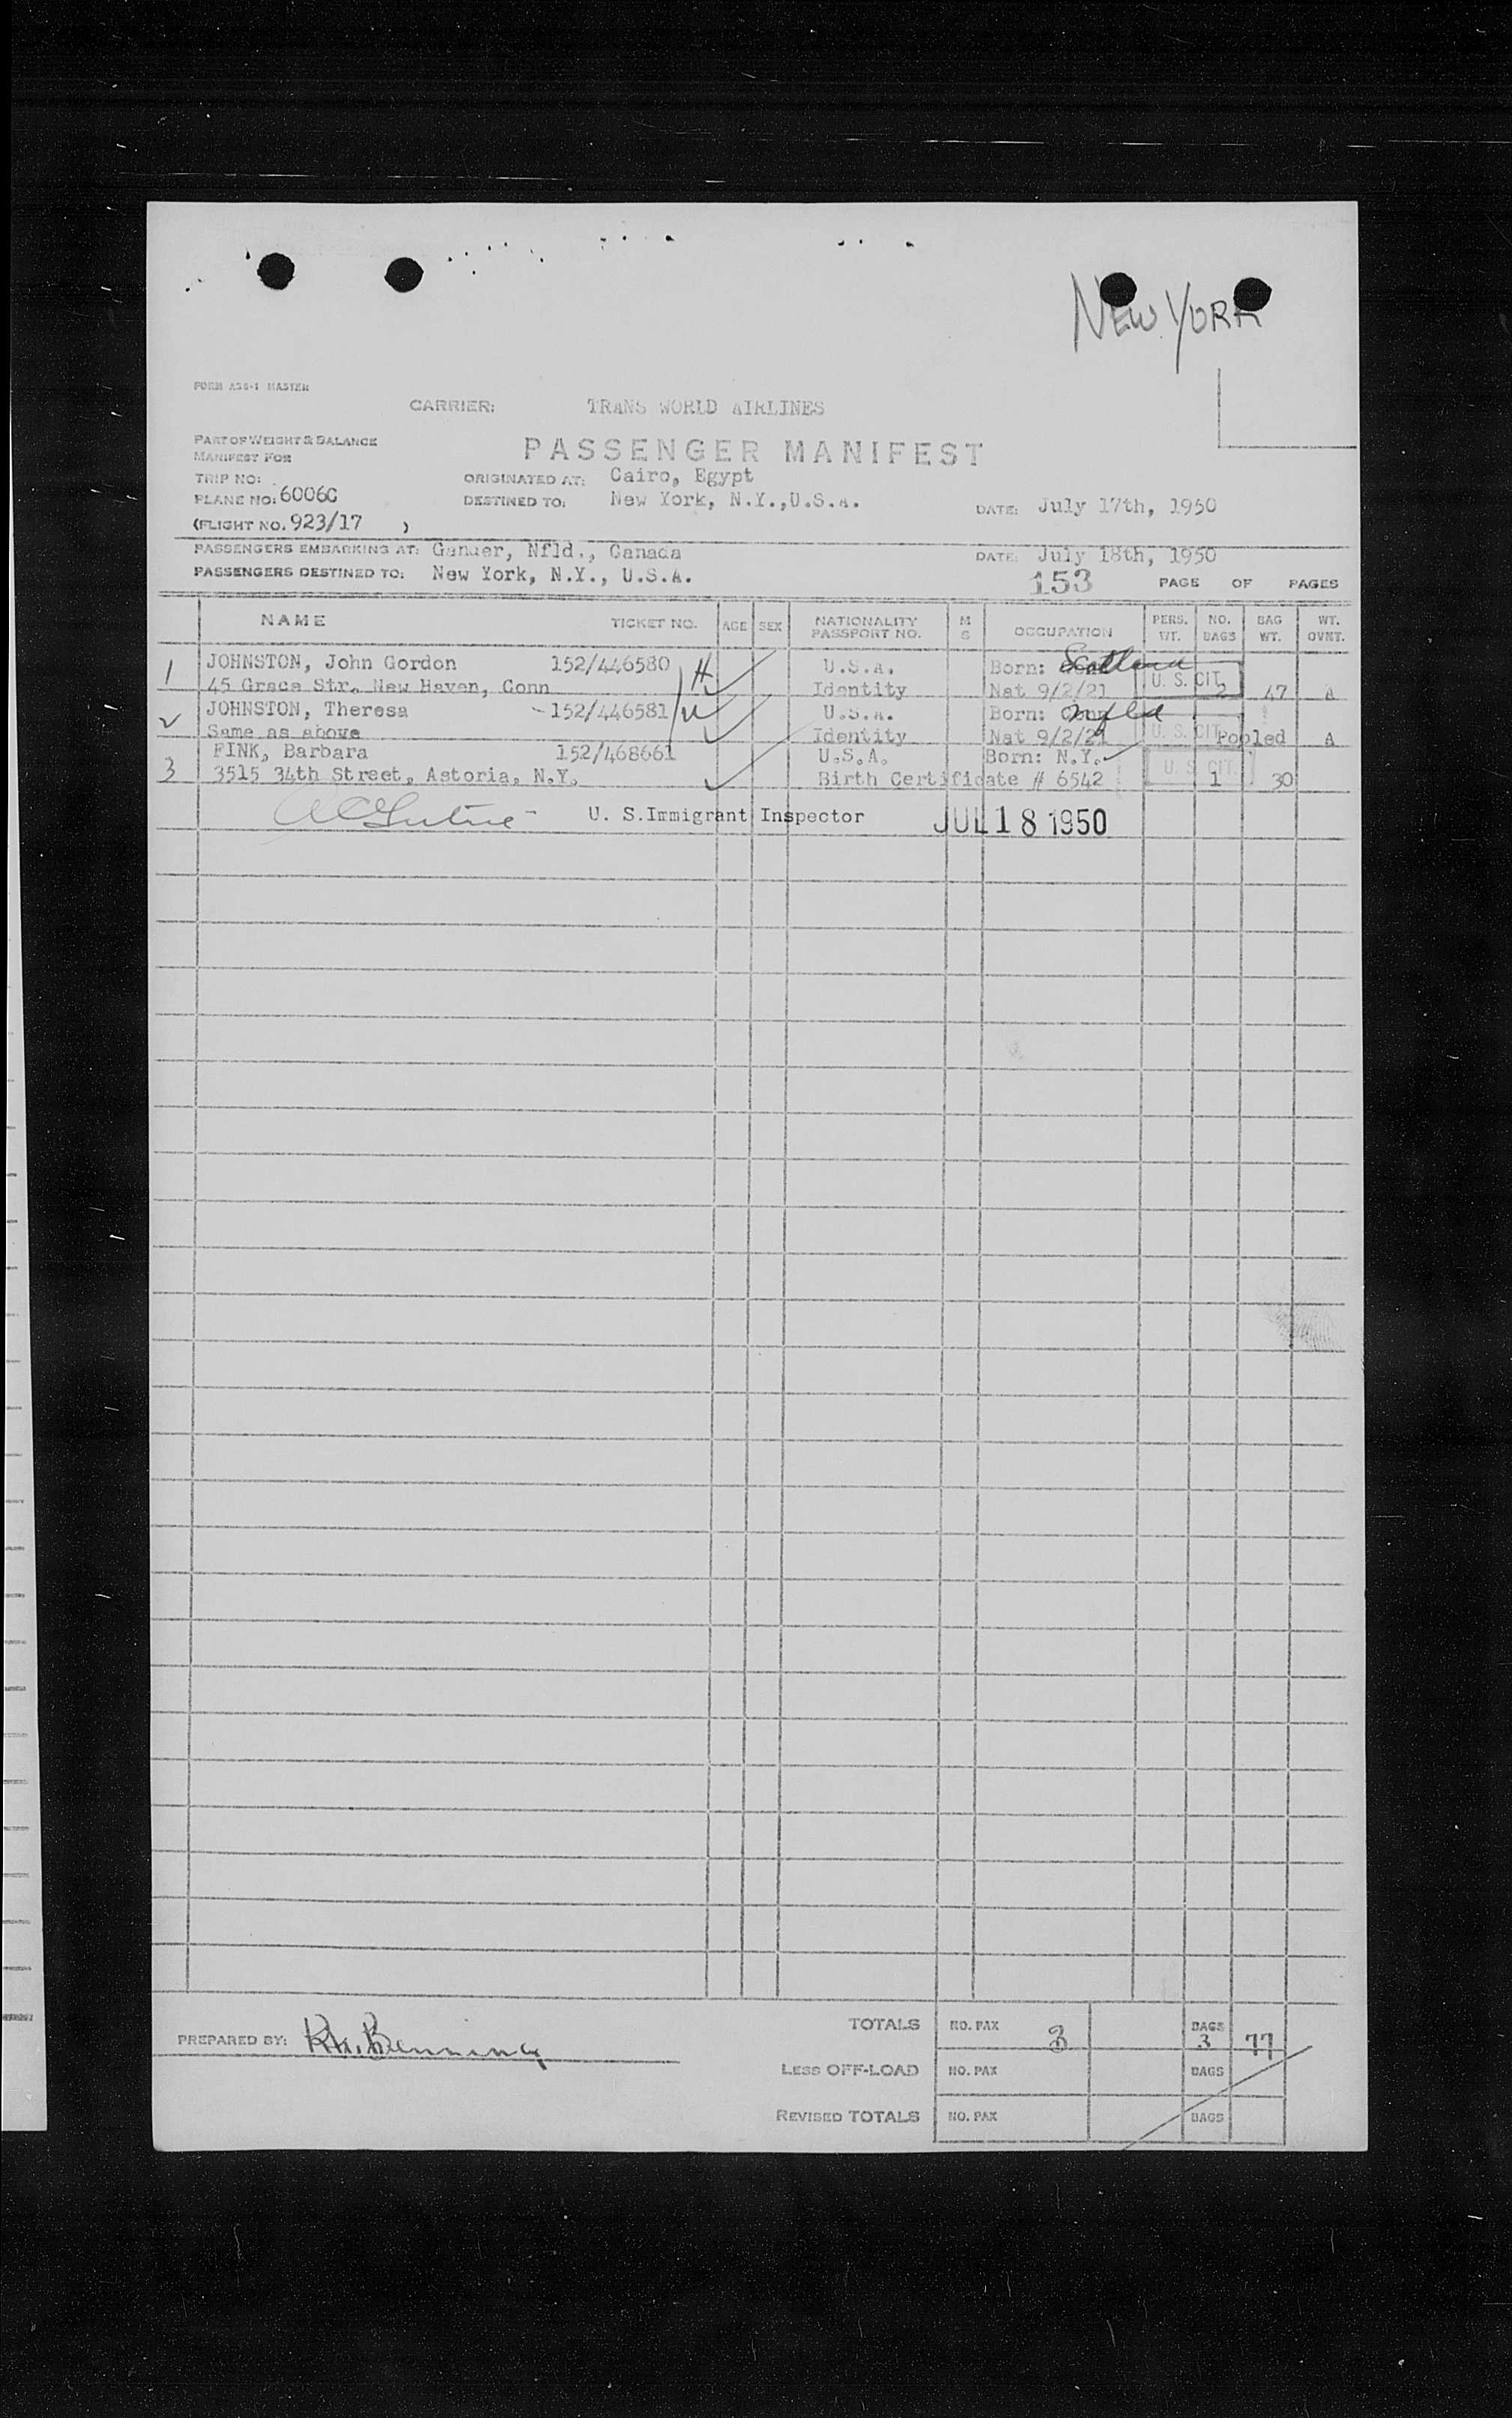 NEW YORK
FORM A36-1 MASTER
CARRIER: TRANS WORLD AIRLINES
PART OF WEIGHT & BALANCE
MANIFEST FOR
PASSENGER MANIFEST
TRIP NO: ORIGINATED AT: Cairo, Egypt
PLANE NO: 6006C DESTINED TO: New York, N.Y.,U.S.A. DATE: July 17th, 1950
(FLIGHT NO. 923/17 )
PASSENGERS EMBARKING AT: Gander, Nfld., Canada DATE: July 18th, 1950
PASSENGERS DESTINED TO: New York, N.Y., U.S.A. 153 PAGE OF PAGES
NAME TICKET NO. AGE SEX NATIONALITY PASSPORT NO. M S OCCUPATION PERS. WT. NO. BAGS BAG WT. WT. OVNT.
1 JOHNSTON, John Gordon 152/446580 H U.S.A. Born: Scotland
45 Grace Str. New Haven, Conn Identity Nat 9/2/21 U. S. CIT. 2 47 A
2 JOHNSTON, Theresa -152/446581 W U.S.A. Born: Nfld
Same as above Identity Nat 9/2/21 U. S. CIT. Pooled A
FINK, Barbara 152/468661 U.S.A. Born: N.Y.
3 3515 34th Street, Astoria, N.Y. Birth Certificate # 6542 U. S. CIT. 1 30
U. S.Immigrant Inspector JUL 18 1950
PREPARED BY: TOTALS NO. PAX 3 BAGS 3 77
LESS OFF-LOAD NO. PAX BAGS
REVISED TOTALS NO. PAX BAGS